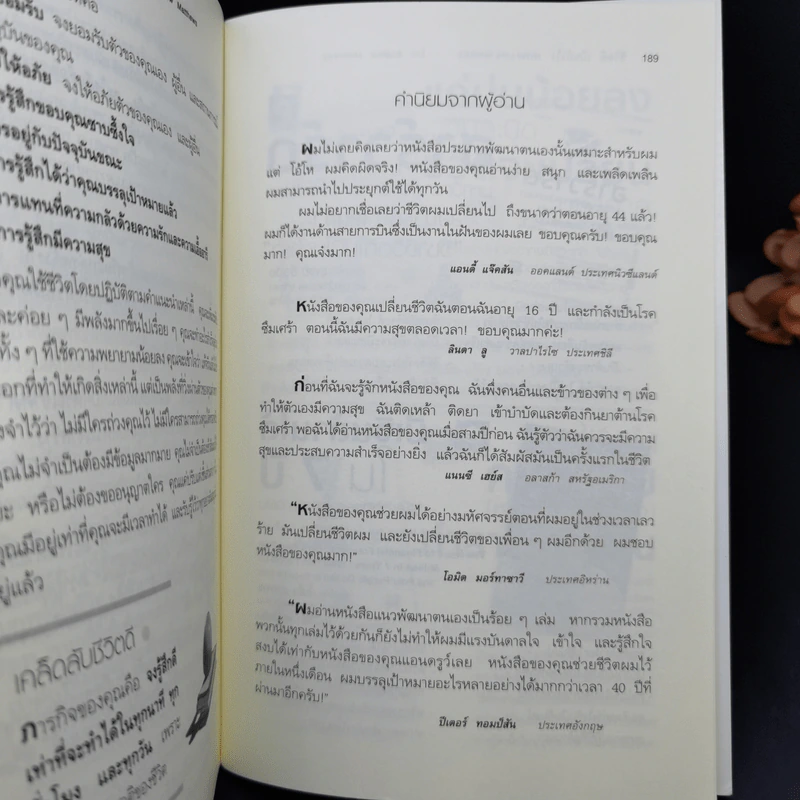 Matthews
ยอมรับ จงยอมรับตัวของคุณเอง ผู้อื่น
ให้อภัย จงให้อภัยตัวของคุณเอง และผู้อื่น
รู้สึกขอบคุณซาบซึ้งใจ
อยู่กับปัจจุบันขณะ
การรู้สึกได้ว่าคุณบรรลุเป้าหมายแล้ว
การแทนที่ความกลัวด้วยความรักและความเอื้ออารี
การรู้สึกมีความสุข
คุณใช้ชีวิตโดยปฏิบัติตามคำแนะนำเหล่านี้
และค่อย ๆ มีพลังมากขึ้นไปเรื่อย ๆ
ทั้ง ๆ ที่ใช้ความพยายามน้อยลง
จำไว้ว่า ไม่มีใครถ่วงคุณไว้
คุณไม่จำเป็นต้องมีข้อมูลมากมาย
หรือไม่ต้องขออนุญาตใคร
คุณมีอยู่เท่าที่คุณจะมีเวลาทำได้
อยู่แล้ว
เคล็ดลับชีวิตดี
ภารกิจของคุณคือ จงรู้สึกดี
เท่าที่จะทำได้ในทุกนาที ทุก
ชั่วโมง และทุกวัน เพราะ
189
คำนิยมจากผู้อ่าน
ผมไม่เคยคิดเลยว่าหนังสือประเภทพัฒนาตนเองนั้นเหมาะสำหรับผม
แต่ โอ้โห ผมคิดผิดจริง! หนังสือของคุณอ่านง่าย สนุก และเพลิดเพลิน
ผมสามารถนำไปประยุกต์ใช้ได้ทุกวัน
ผมไม่อยากเชื่อเลยว่าชีวิตผมเปลี่ยนไป ถึงขนาดว่าตอนอายุ 44 แล้ว!
ผมก็ได้งานด้านสายการบินซึ่งเป็นงานในฝันของผมเลย ขอบคุณครับ! ขอบคุณ
มาก! คุณเจ๋งมาก!
แอนดี้ แจ๊คสัน ออคแลนด์ ประเทศนิวซีแลนด์
หนังสือของคุณเปลี่ยนชีวิตฉันตอนฉันอายุ 16 ปี และกำลังเป็นโรค
ซึมเศร้า ตอนนี้ฉันมีความสุขตลอดเวลา! ขอบคุณมากค่ะ!
ลินดา ลู วาลปาไรโซ ประเทศชิลี
ก่อนที่ฉันจะรู้จักหนังสือของคุณ ฉันพึ่งคนอื่นและข้าวของต่าง ๆ เพื่อ
ทำให้ตัวเองมีความสุข ฉันติดเหล้า ติดยา เข้าบำบัดและต้องกินยาต้านโรค
ซึมเศร้า พอฉันได้อ่านหนังสือของคุณเมื่อสามปีก่อน ฉันรู้ตัวว่าฉันควรจะมีความ
สุขและประสบความสำเร็จอย่างยิ่ง แล้วฉันก็ได้สัมผัสมันเป็นครั้งแรกในชีวิต
แนนซี เฮย์ส อลาสก้า สหรัฐอเมริกา
"หนังสือของคุณช่วยผมได้อย่างมหัศจรรย์ตอนที่ผมอยู่ในช่วงเวลาเลว
ร้าย มันเปลี่ยนชีวิตผม และยังเปลี่ยนชีวิตของเพื่อน ๆ ผมอีกด้วย ผมชอบ
หนังสือของคุณมาก!"
โอมิด มอร์ทาซาวี ประเทศอิหร่าน
"ผมอ่านหนังสือแนวพัฒนาตนเองเป็นร้อย ๆ เล่ม หากรวมหนังสือ
พวกนั้นทุกเล่มไว้ด้วยกันก็ยังไม่ทำให้ผมมีแรงบันดาลใจ เข้าใจ และรู้สึกใจ
สงบได้เท่ากับหนังสือของคุณแอนดรูว์เลย หนังสือของคุณช่วยชีวิตผมไว้
ภายในหนึ่งเดือน ผมบรรลุเป้าหมายอะไรหลายอย่างได้มากกว่าเวลา 40 ปีที่
ผ่านมาอีกครับ!"
ปีเตอร์ ทอมป์สัน ประเทศอังกฤษ